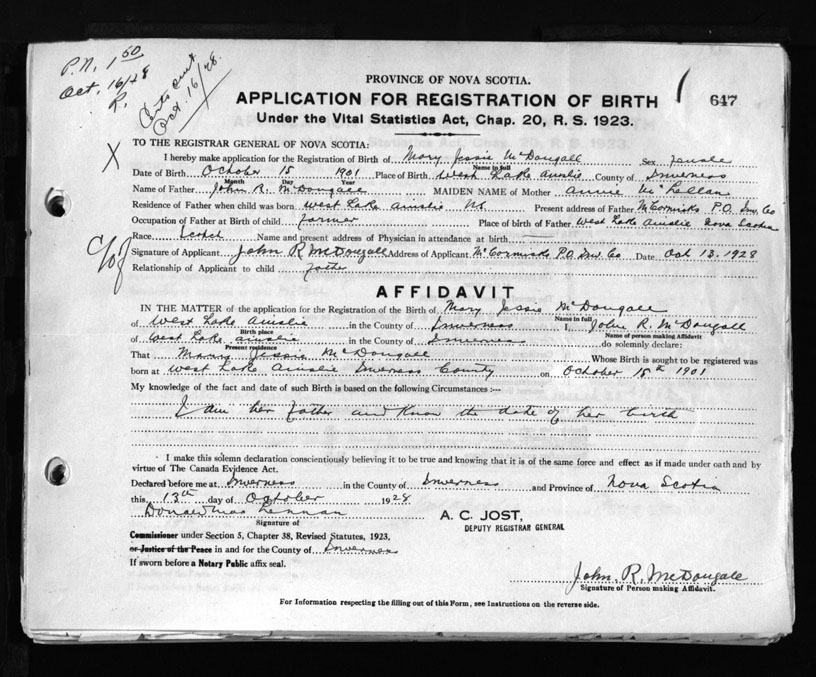 P.N. 1 50
Oct. 16/28
Oct. 16/28.
PROVINCE OF NOVA SCOTIA.
APPLICATION FOR REGISTRATION OF BIRTH
647
Under the Vital Statistics Act, Chap. 20, R. S. 1923.
X
TO THE REGISTRAR GENERAL OF NOVA SCOTIA:
I hereby make application for the Registration of Birth of Mary Jessie McDougall Sex female
Name in full
Date of Birth October 15 1901 Place of Birth West Lake Ainslie County of Inverness
Month Day Year
Name of Father John R. McDougall MAIDEN NAME of Mother Annie McLellan
Residence of Father when child was born West Lake Ainslie NS Present address of Father McCormicks P.O. Inv. Co
Occupation of Father at Birth of child farmer Place of birth of Father West Lake Ainslie Nova Scotia
c/of
Race Scotch Name and present address of Physician in attendance at birth
Signature of Applicant John R McDougall Address of Applicant McCormicks P.O. Inv. Co Date Oct 13. 1928
Relationship of Applicant to child father
AFFIDAVIT
IN THE MATTER of the application for the Registration of the Birth of Mary Jessie McDougall
Name in full
of West Lake Ainslie in the County of Inverness I, John R. McDougall
Birth place Name of person making Affidavit
of West Lake Ainslie in the County of Inverness do solemnly declare:
Present residence
That Mary Jessie McDougall Whose Birth is sought to be registered was
born at West Lake Ainslie Inverness County on October 15th 1901
My knowledge of the fact and date of such Birth is based on the following Circumstances :—
I am her father and know the date of her birth
I make this solemn declaration conscientiously believing it to be true and knowing that it is of the same force and effect as if made under oath and by
virtue of The Canada Evidence Act.
Declared before me at Inverness in the County of Inverness and Province of Nova Scotia
this 13th day of October 1928
Donald MacLennan
Signature of
A. C. JOST,
DEPUTY REGISTRAR GENERAL
Commissioner under Section 5, Chapter 38, Revised Statutes, 1923,
or Justice of the Peace in and for the County of Inverness
If sworn before a Notary Public affix seal.
John. R. McDougall
Signature of Person making Affidavit.
For Information respecting the filling out of this Form, see Instructions on the reverse side.